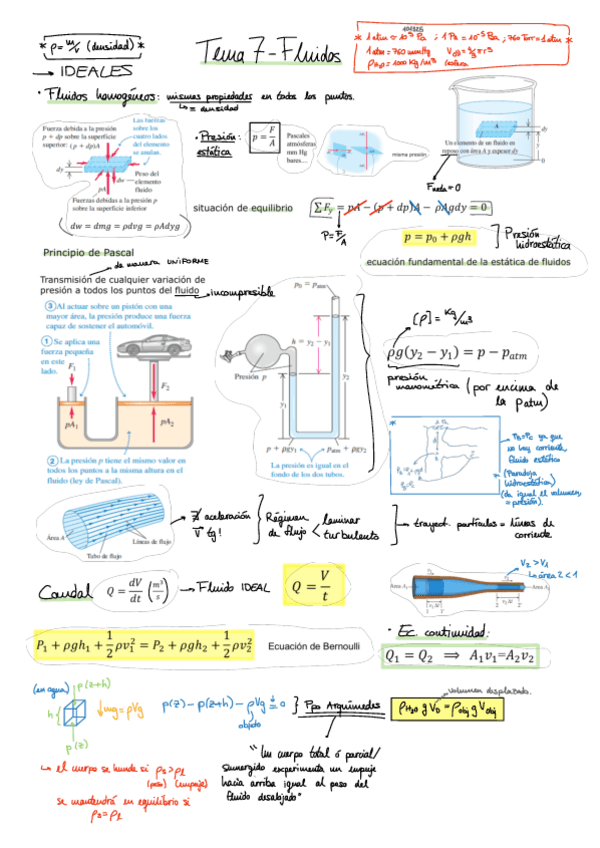 * ρ = m/v (densidad) *
Tema 7 - Fluidos
101325
* 1 atm = 10⁵ Pa ; 1 Pa = 10⁻⁵ Ba ; 760 Torr = 1 atm *
1 atm = 760 mmHg V = 4/3 π r³
ρH₂O = 1000 Kg/m³ esfera
→ IDEALES
• Fluidos homogéneos: mismas propiedades en todos los puntos.
↳ = densidad
Fuerza debida a la presión
p + dp sobre la superficie
superior: (p + dp)A
Las fuerzas
sobre los
cuatro lados
del elemento
se anulan.
dy
pA
dw
Peso del
elemento
fluido
Fuerzas debidas a la presión p
sobre la superficie inferior
(dw = dmg = ρdvg = ρAdyg)
• Presión:
estática
p = F/A
Pascales
atmósferas
mm Hg
bares...
misma presión
A
dy
Un elemento de un fluido en
reposo con área A y espesor dy
y
0
Fneta = 0
situación de equilibrio
ΣFy = pA − (p + dp)A − ρAgdy = 0
P = F/A
p = p₀ + ρgh
Presión
hidroestática
ecuación fundamental de la estática de fluidos
Principio de Pascal
de manera UNIFORME
Transmisión de cualquier variación de
presión a todos los puntos del fluido
incompresible
3 Al actuar sobre un pistón con una
mayor área, la presión produce una fuerza
capaz de sostener el automóvil.
1 Se aplica una
fuerza pequeña
en este
lado.
F₁
F₂
pA₁
pA₂
2 La presión p tiene el mismo valor en
todos los puntos a la misma altura en el
fluido (ley de Pascal).
p₀ = patm
h = y₂ − y₁
Presión p
y₁
y₂
p + ρgy₁
patm + ρgy₂
La presión es igual en el
fondo de los dos tubos.
[ρ] = Kg/m³
ρg(y₂ − y₁) = p − patm
presión
manométrica (por encima de
la Patm)
*
PB=PC ya que
no hay corriente,
fluido estático
(Paradoja
hidroestática)
(da igual el volumen,
= presión).
Área A
Líneas de flujo
Tubo de flujo
∄ aceleración
v tg!
Régimen
de flujo
laminar
turbulento
→ trayect. partículas = líneas de
corriente
V₂ > V₁
Caudal
Q = dV/dt (m³/s)
→ Fluido IDEAL
Q = V/t
P₁ + ρgh₁ + ½ρv₁² = P₂ + ρgh₂ + ½ρv₂²
Ecuación de Bernoulli
• EC. continuidad:
Q₁ = Q₂ ⟹ A₁v₁=A₂v₂
(en agua)
p(z+h)
h
p(z)
↓mg = ρVg
p(z) − p(z+h) − ρVg = 0
objeto
} Ppo Arquímedes
volumen desplazado.
ρH₂O g VD = ρobj g Vobj
"Un cuerpo total ó parcial/
sumergido experimenta un empuje
hacia arriba igual al peso del
fluido desalojado"
↳ el cuerpo se hunde si ρs > ρl
(peso) (empuje)
se mantendrá en equilibrio si
ρs = ρl